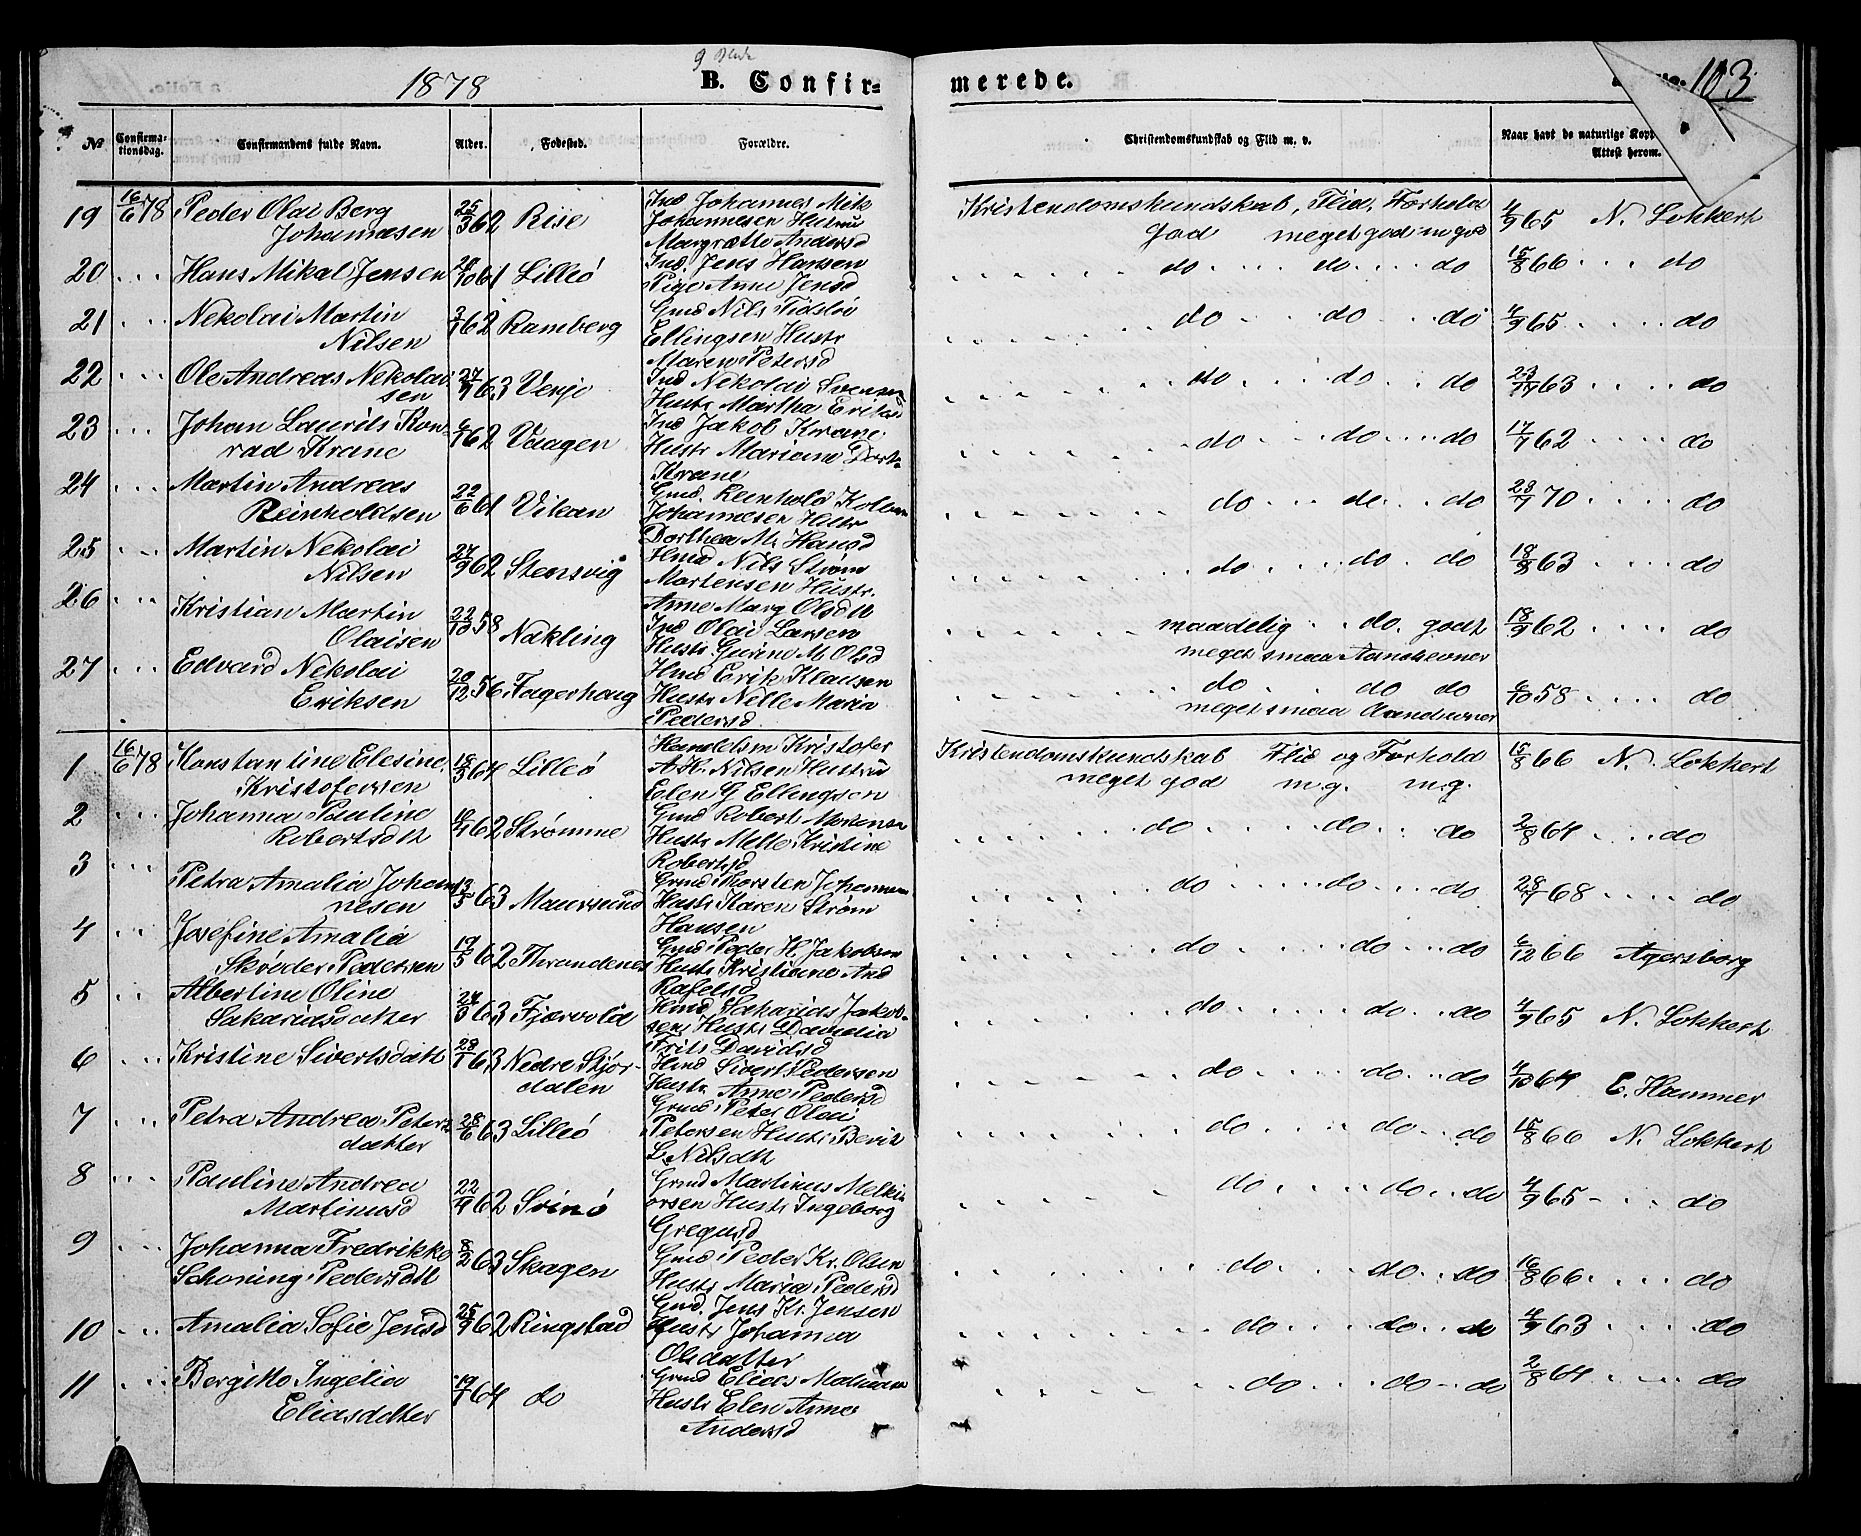 1878
B. Confir= merede.
103
No
Confirma-
tionsdag.
Confirmandens fulde Navn.
Alder.
Fødested.
Forældre.
Christendomskundskab og Flid m. v.
Naar havt de naturlige Kop
Attest herom.
19 16/6 78 Peder Olai Berg
Johannesen 25/3 62 Risø
Ind Johannes Mik
Johannesen Hustru
Margrætte Andersd
Kristendomskundskab, Flid, Forhold
god meget god m god
4/9 65 N. Lokkert
20 Hans Mikal Jensen 20/10 61 Lilleö
Ind. Jens Hansen
Pige Anne Jensd
do do do 15/8 66 do
21 Nekolai Martin
Nilsen 3/1 62 Ramberg
Gmd Nils Tidslö
Ellingsen Hustr
Maren Petersd
do do do 4/9 65 do
22 Ole Andreas Nekolai
sen 27/1 63
Ind Nekolai Svensen
Hustr Martha Eriksd
do do do 63 do
23 Johan Laurits Kon-
rad Krane 6/1 62 Vaagen
Ind Jakob Krane
Hustr Mariane Dort-
Krane
do do do 17/7 62 do
24 Martin Andreas
Reinholdsen 22/6 61 Vikan
Gmd. Reinhold
Johannesen Hustr
Dorthea M. Hansd
do do do 23/7 70 do
25 Martin Nekolai
Nilsen 27/9 62 Stensvig
Hmd Nils Strøm
Martensen Hustr.
Anne Marg Olsdtt
do do do 18/8 63 do
26 Kristian Martin
Olaisen 22/10 58 Nakling
Ind Olai Larsen
Hustr Gurine M Olsd
maadelig do. godt
meget smaa Aandsevner
18/9 62 do
27 Edvard Nekolai
Eriksen 20/12 56 Fagerhaug
Hmd Erik Klausen
Hustr Nille Maria
Pedersd
do do do
meget smaa Aandsevner
6/10 58 do
1 16/6 78 Konstantine Elesine
Kristofersen 18/3 64 Lilleö
Handelsm Kristofer
A.H. Nilsen Hustru
Elen G Ellingsen
Kristendomskundskab Flid og Forhold
meget god m.g. m.g.
15/8 66 N. Lokkert
2 Johanna Pauline
Robertsdtt 62 Strømme
Gmd Robert
Hustr Mette Kristine
Robertsd
do do do 2/8 64 do
3 Petra Amalia Johan
nesen 13/5 63 Maursund
Gmd Thorsten
Hustr Karen Strøm
Hansen
do do do 68 do
4 Josefine Amalia
Skrøder Pedersen 19/5 62 Throndenes
Gmd Peder H. Jakobsen
Hustr Kristiane And
Rafelsd
do do do 6/12 66 Agersborg
5 Albertine Oline
Sakariasdatter 63 Fjærvold
Hmd Sakarias Jakob-
sen Hustr Danielia
Frits Davidsd
do do do 4/9 65 N. Lokkert
6 Kristine Sivertsdatt 28/1 63 Nedre Stjør-
dalen
Hmd Sivert Pedersen
Hustr Anne Pedersd
do do do 4/10 64 E. Hammer
7 Petra Andrea Peters
datter 28/6 63 Lilleö
Grmd Peter Olai
Petersen Hustr Berit
L. Nilsdtt
do do do 15/8 66 N. Lokkert
8 Pauline Andrea
Martinusd 62 Svinö
Grmd Martinus Melki
orsen Hustr Ingeborg
Gregusd
do do do 4/9 65 do
9 Johanna Fredrikke
Schøning Pedersdtt 8/2 63 Skagen
Gmd Peder Kr. Olsen
Hustr Maria Pedersd
do do do 16/8 66 do
10 Amalia Sofie Jensd 25/9 62 Ringstad
Gmd. Jens Kr. Jensen
Hustr Johanna
Olsdatter
do do do 4/9 63 do
11 Bergitte Ingelia
Eliasdatter 19/1 64 do
Grmd Elias
Hustr Elen Anna
Andersd
do do do 2/8 64 do